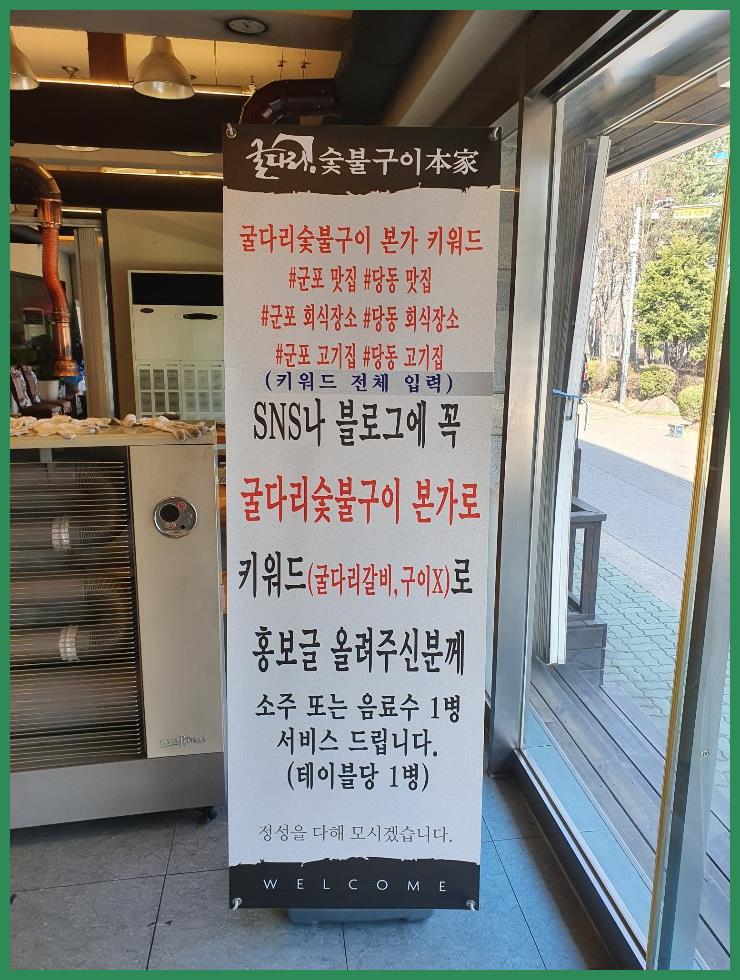 굴다리숯불구이本家
굴다리숯불구이 본가 키워드
#군포 맛집 #당동 맛집
#군포 회식장소 #당동 회식장소
#군포 고기집 #당동 고기집
(키워드 전체 입력)
SNS나 블로그에 꼭
굴다리숯불구이 본가로
키워드(굴다리갈비,구이X)로
홍보글 올려주신분께
소주 또는 음료수 1병
서비스 드립니다.
(테이블당 1병)
정성을 다해 모시겠습니다.
WELCOME